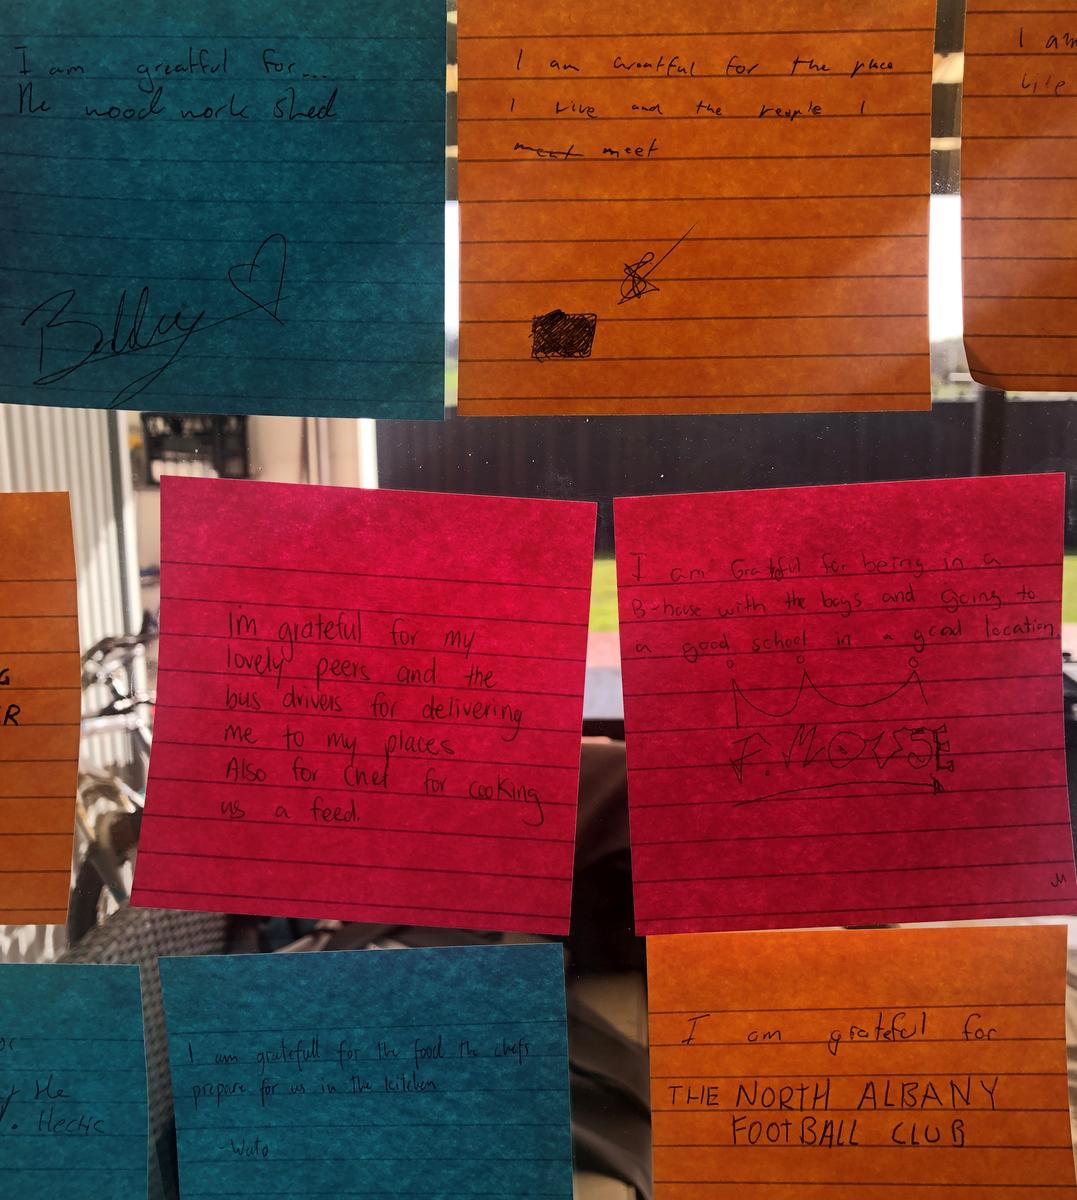 I am greatful for...
the wood work shed
I am Greatful for the place
I live and the people I
meat meet
I am
life
G
ER
I'm grateful for my
lovely peers and the
bus drivers for delivering
me to my places
Also for Chef for cooking
us a feed.
I am Gratful for being in a
B-house with the boys and going to
a good school in a good location.
F.MOUSE
He
. Hectic
I am gratefull for the food the chefs
prepare for us in the kitchen
I am grateful for
THE NORTH ALBANY
FOOTBALL CLUB